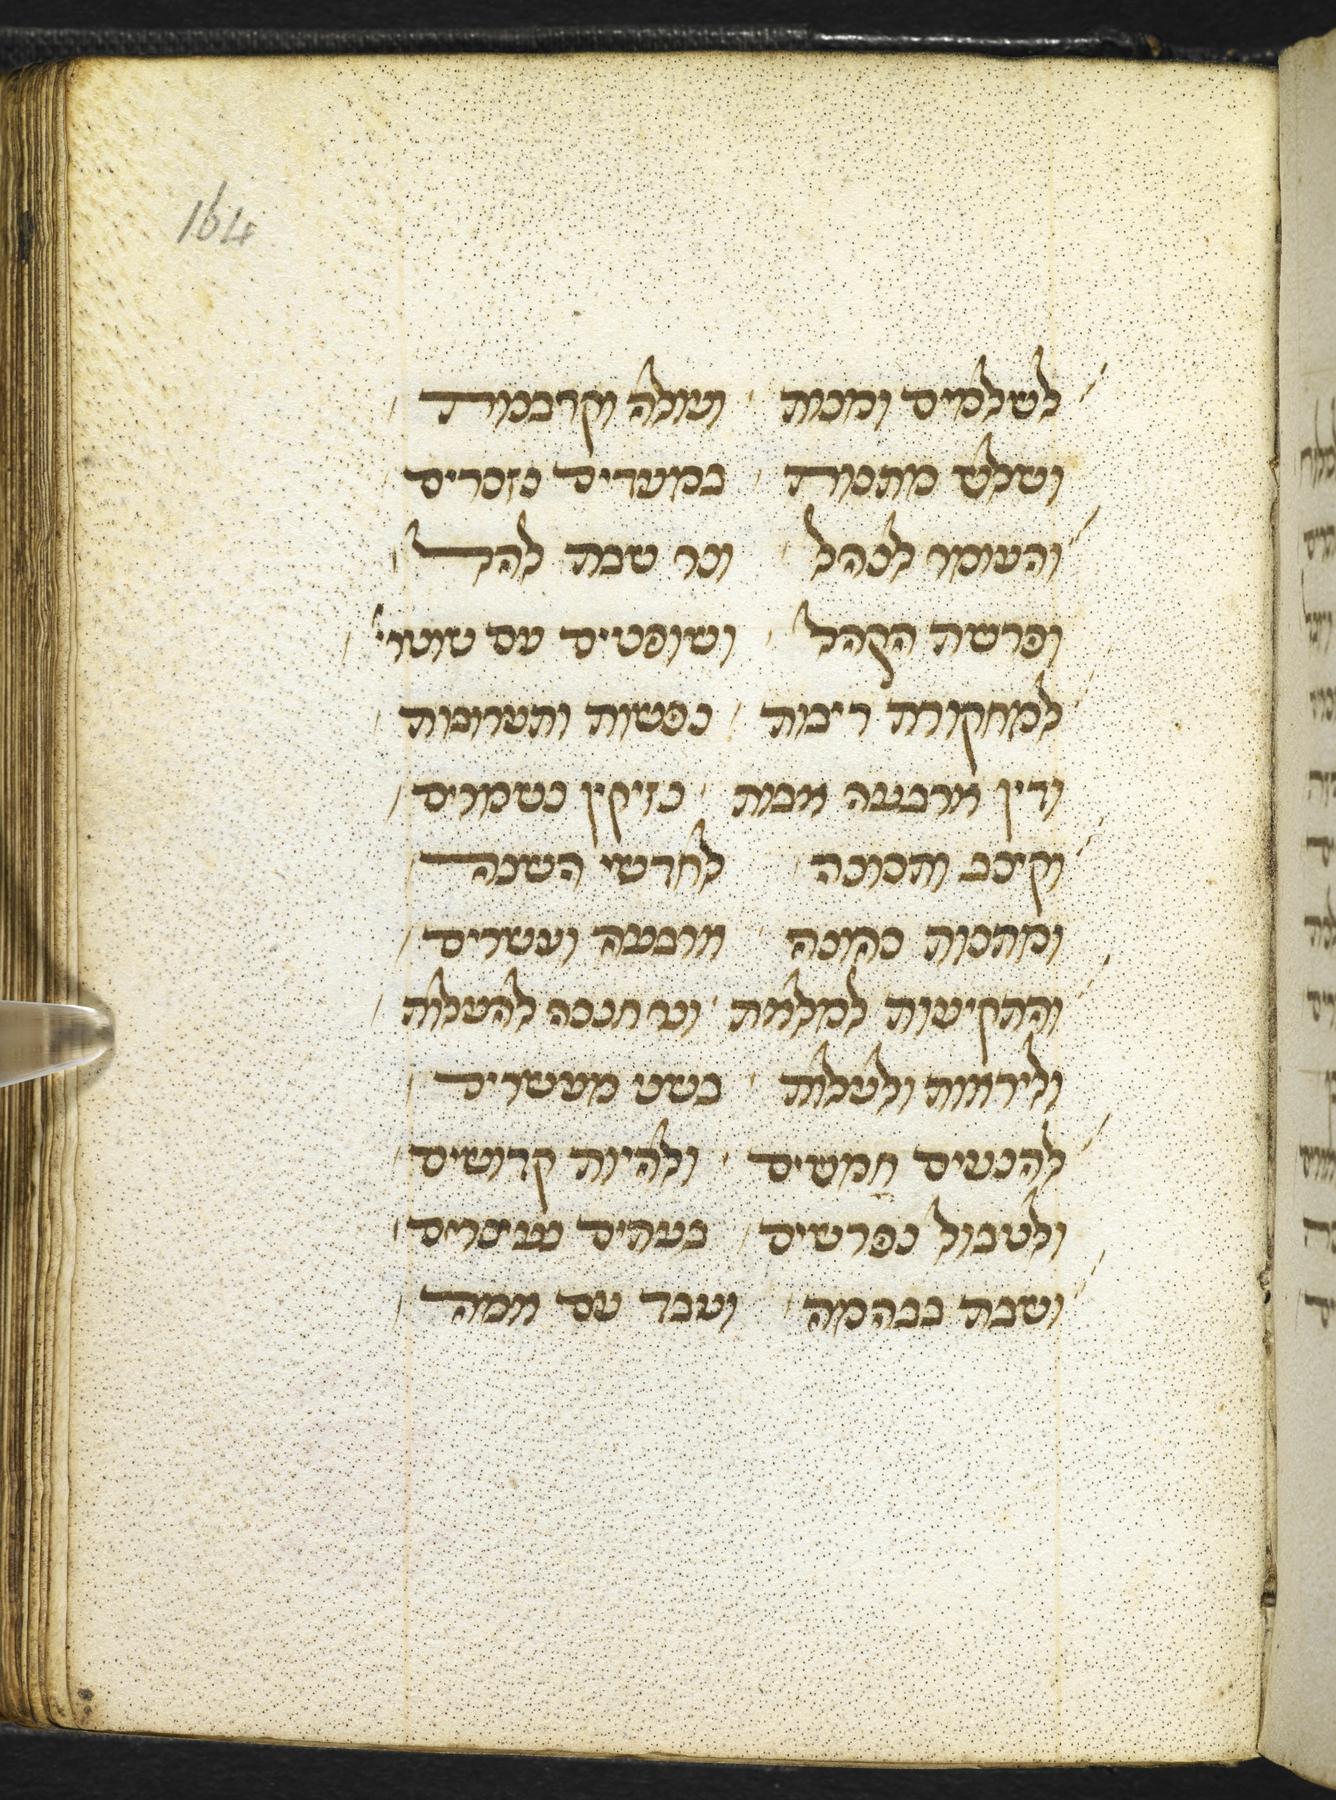 164
לשלמים ומנות ועולה וקרבנות
ושלש מתנות במעדים נזכרים
והעומר לכהל ונר שבת להדל
ופרשת הקהל ושופטים עם שוטרי'
למחקורת ריבות נפשות ותערובות
ודין ארבעה אבות נזיקין בשמרים
וקיבב והסוכה לחדשי השנה
ומתנות כהונה ארבעה ועשרים
והתקיעות למלאת ונר חנכה להעלות
וליראות ולעלות בשט מעשרים
להכעיס חמשים ולהיות קדושים
ולטבול נפרשים בעתים
ושבת בבהמה ועבד עם אמה